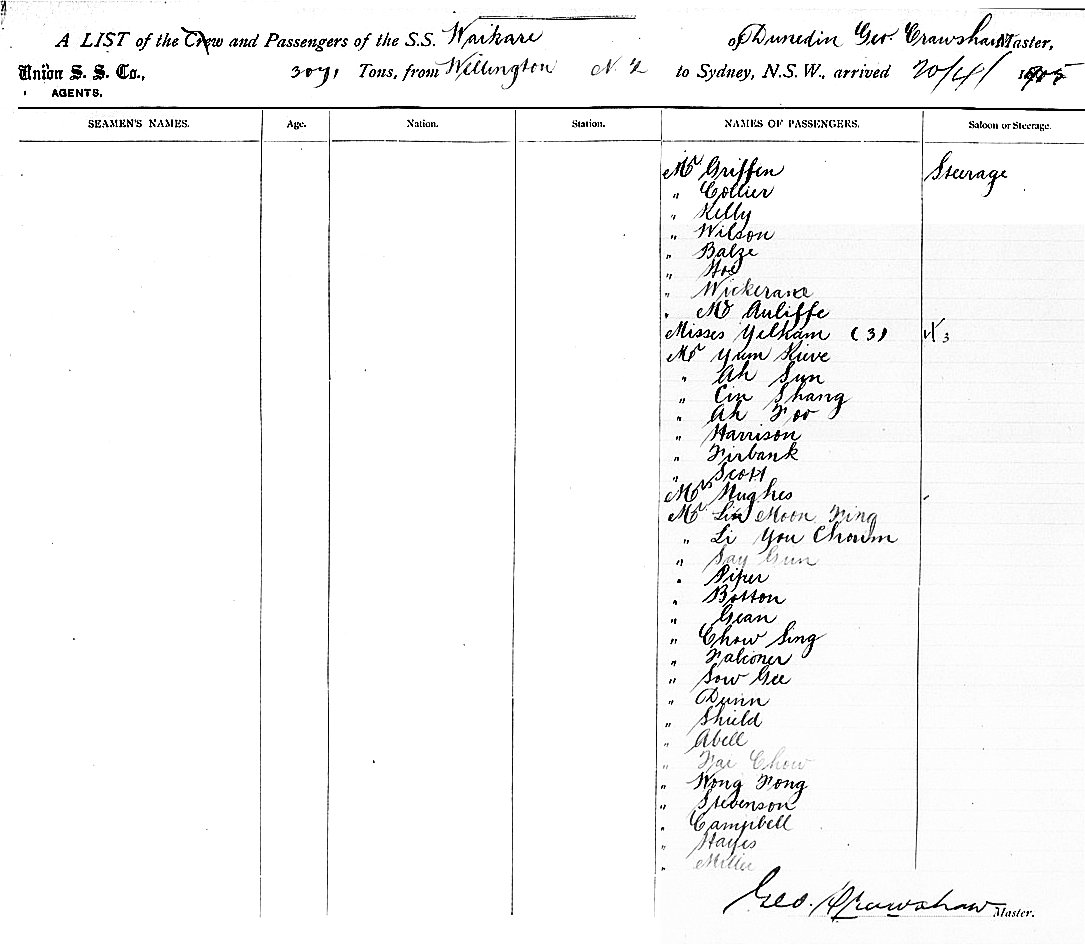 A LIST of the Crew and Passengers of the S.S. Waikare of Dunedin Geo Crawshaw Master,
Union S. S. Co., 3071 Tons, from Wellington N Z to Sydney, N.S.W., arrived 20/4/1905
AGENTS.
SEAMEN'S NAMES. Age. Nation. Station. NAMES OF PASSENGERS. Saloon or Steerage.
Mr Griffen Steerage
" Collier
" Kelly
" Wilson
" Balze
" Hoe
" Wickerane
" Mc Auliffe
Misses Yelham (3) 3
Mr Yum Kieve
" Ah Sun
" Cin Shang
" Ah Foo
" Harrison
" Firbank
" Scott
Mrs Hughes
Mr Lin Moon Fing
" Li You Choum
" Say Gun
" Piper
" Botton
" Gean
" Chow Sing
" Falconer
" Sow Gee
" Dunn
" Shield
" Abell
" Fae Chow
" Wong Fong
" Stevenson
" Campbell
" Hayes
" Miller
Geo. Crawshaw Master.